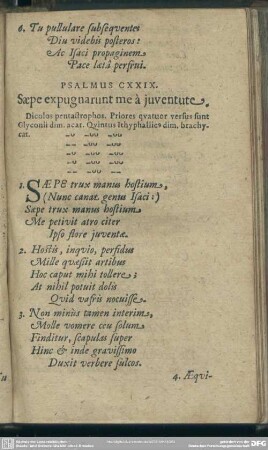 6. Tu pullulare subseqventes
Diu videbis posteros:
Ac Isaci propaginem
Pace lætâ perfrui.
PSALMUS CXXIX.
Sæpe expugnarunt me à juventute.
Dicolos pentastrophos. Priores qvatuor versus sunt
Glyconii dim. acat. Qvintus Ithyphallicus dim. brachy-
cat.
1. SÆPE trux manus hostium,
(Nunc canat genus Isaci:)
Sæpe trux manus hostium
Me petivit atro citer
Ipso flore juventæ.
2. Hostis, inqvio, perfidus
Mille quæsiit artibus
Hoc caput mihi tollere;
At nihil potuit dolis
Qvid vafris nocuisse.
3. Non minùs tamen interim,
Molle vomere ceu solum
Finditur, scapulas super
Hinc & inde gravissimo
Duxit verbere sulcos.
4. Æqui-